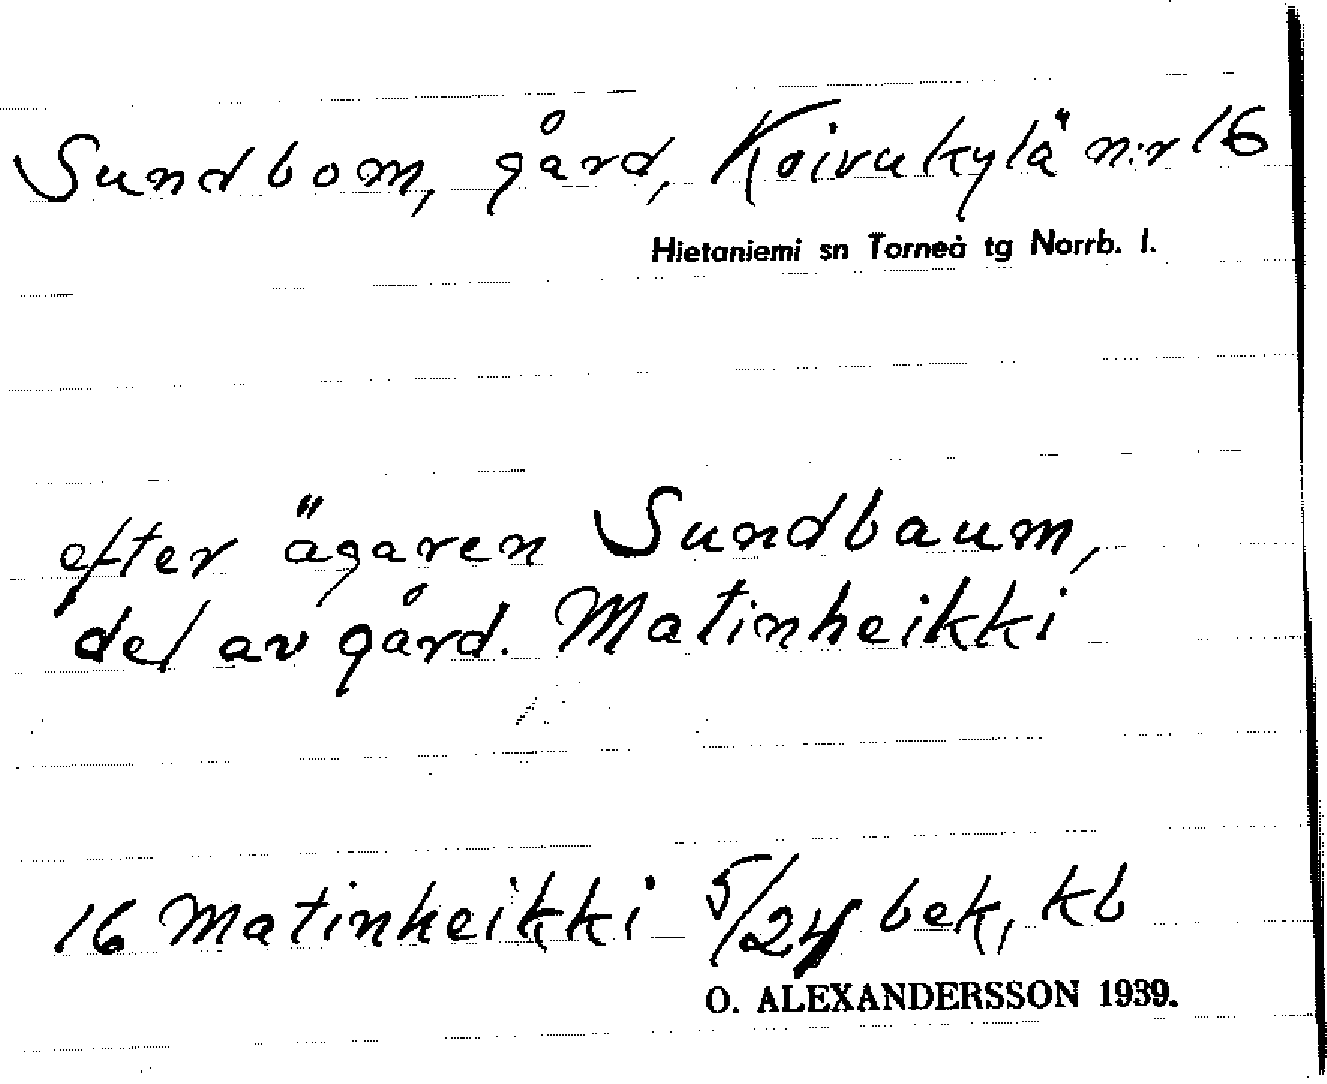 Sundbom, gård, Koivukylä n:r 16
Hietaniemi sn Torneå tg Norrb. l.
efter ägaren Sundbaum,
del av gård. Matinheikki
16 Matinheikki 5/24 bek, kb
O. ALEXANDERSSON 1939.